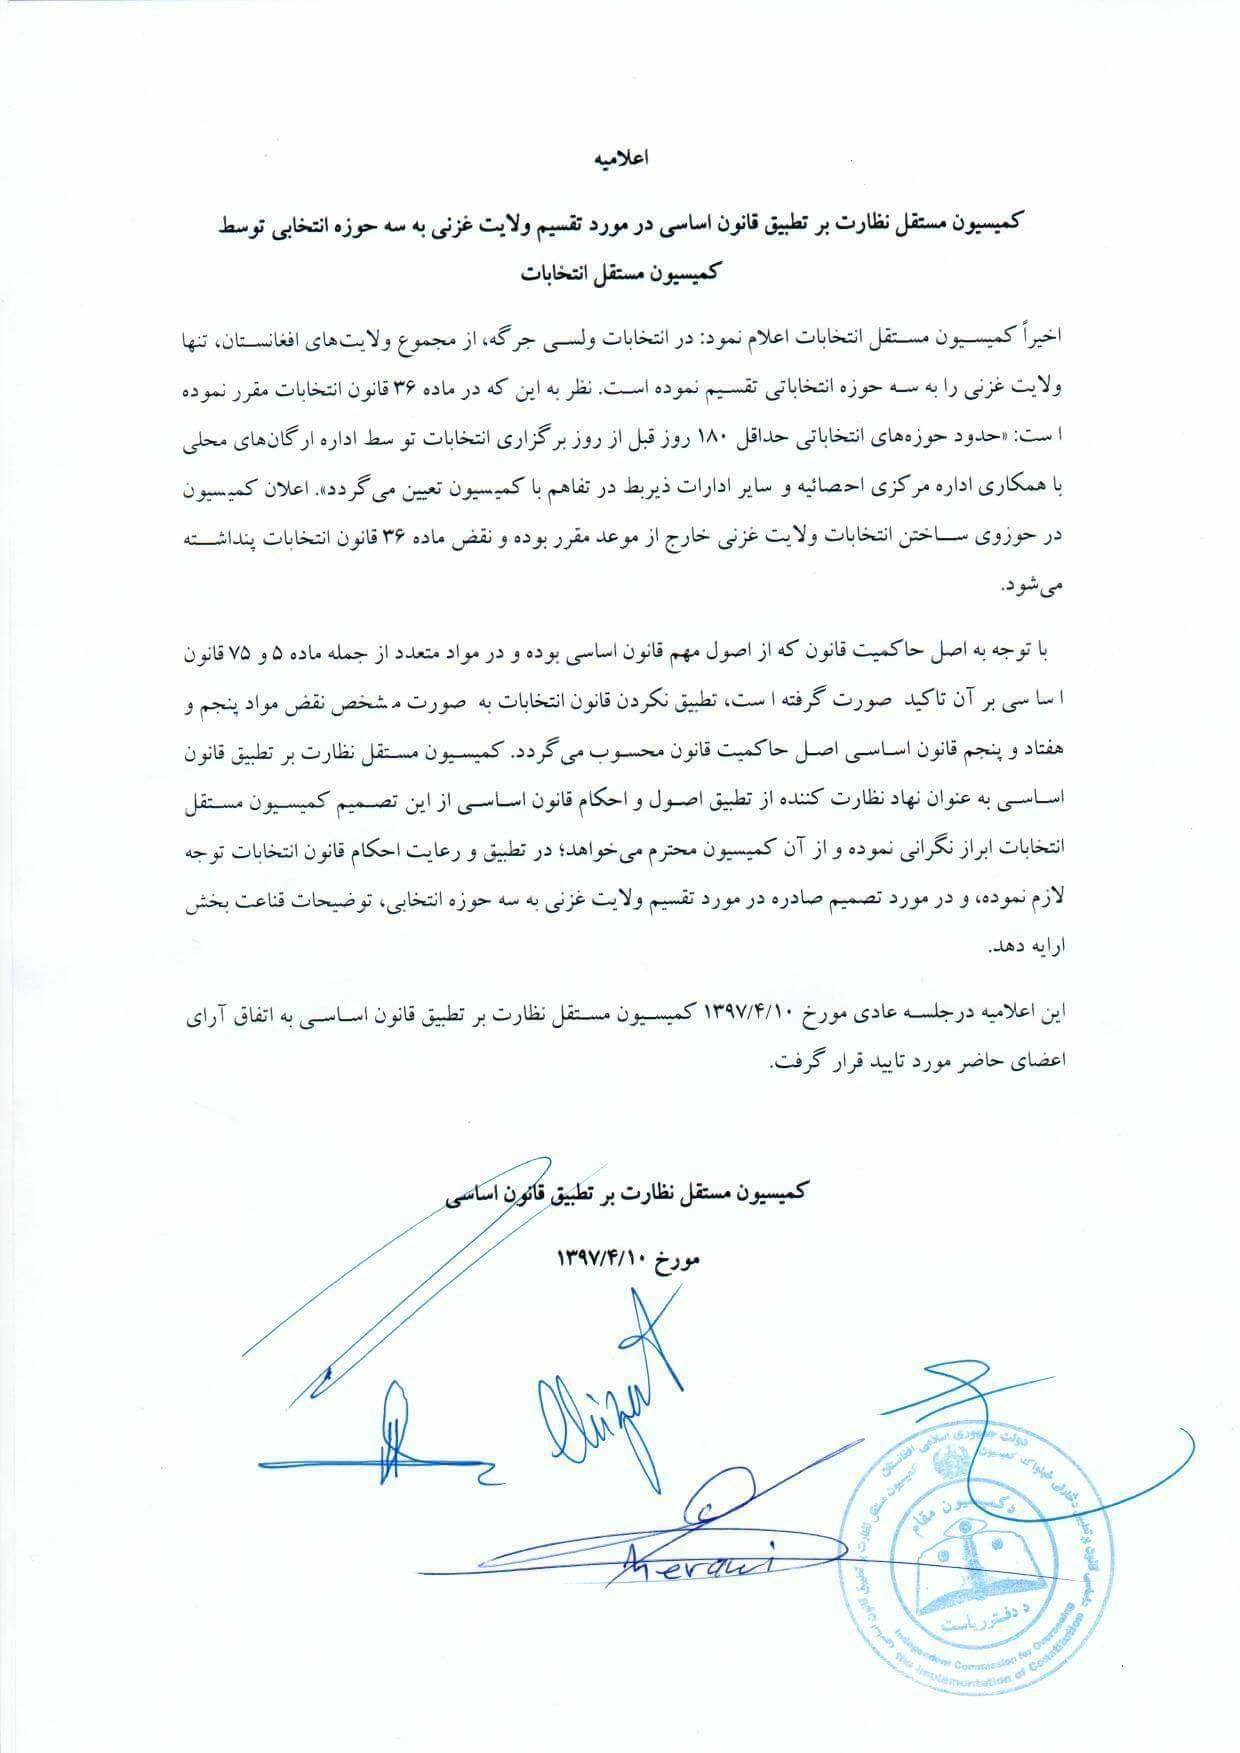 اعلامیه
کمیسیون مستقل نظارت بر تطبیق قانون اساسی در مورد تقسیم ولایت غزنی به سه حوزه انتخابی توسط
کمیسیون مستقل انتخابات
اخیراً کمیسیون مستقل انتخابات اعلام نمود: در انتخابات ولسی جرگه، از مجموع ولایت‌های افغانستان، تنها
ولایت غزنی را به سه حوزه انتخاباتی تقسیم نموده است. نظر به این که در ماده ۳۶ قانون انتخابات مقرر نموده
است: «حدود حوزه‌های انتخاباتی حداقل ۱۸۰ روز قبل از روز برگزاری انتخابات توسط اداره ارگان‌های محلی
با همکاری اداره مرکزی احصائیه و سایر ادارات ذیربط در تفاهم با کمیسیون تعیین می‌گردد». اعلان کمیسیون
در حوزوی ساختن انتخابات ولایت غزنی خارج از موعد مقرر بوده و نقض ماده ۳۶ قانون انتخابات پنداشته
می‌شود.
با توجه به اصل حاکمیت قانون که از اصول مهم قانون اساسی بوده و در مواد متعدد از جمله ماده ۵ و ۷۵ قانون
اساسی بر آن تاکید صورت گرفته است، تطبیق نکردن قانون انتخابات به صورت مشخص نقض مواد پنجم و
هفتاد و پنجم قانون اساسی اصل حاکمیت قانون محسوب می‌گردد. کمیسیون مستقل نظارت بر تطبیق قانون
اساسی به عنوان نهاد نظارت کننده از تطبیق اصول و احکام قانون اساسی از این تصمیم کمیسیون مستقل
انتخابات ابراز نگرانی نموده و از آن کمیسیون محترم می‌خواهد؛ در تطبیق و رعایت احکام قانون انتخابات توجه
لازم نموده، و در مورد تصمیم صادره در مورد تقسیم ولایت غزنی به سه حوزه انتخابی، توضیحات قناعت بخش
ارایه دهد.
این اعلامیه درجلسه عادی مورخ ۱۳۹۷/۴/۱۰ کمیسیون مستقل نظارت بر تطبیق قانون اساسی به اتفاق آرای
اعضای حاضر مورد تایید قرار گرفت.
کمیسیون مستقل نظارت بر تطبیق قانون اساسی
مورخ ۱۳۹۷/۴/۱۰
دولت جمهوری اسلامی افغانستان
کمیسیون مستقل نظارت بر تطبیق قانون اساسی
د کمیسیون مقام
د دفتر ریاست
Independent Commission for Overseeing
the Implementation of Constitution